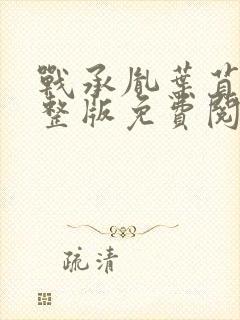 戰承胤葉苜
整版免費閱
疏清